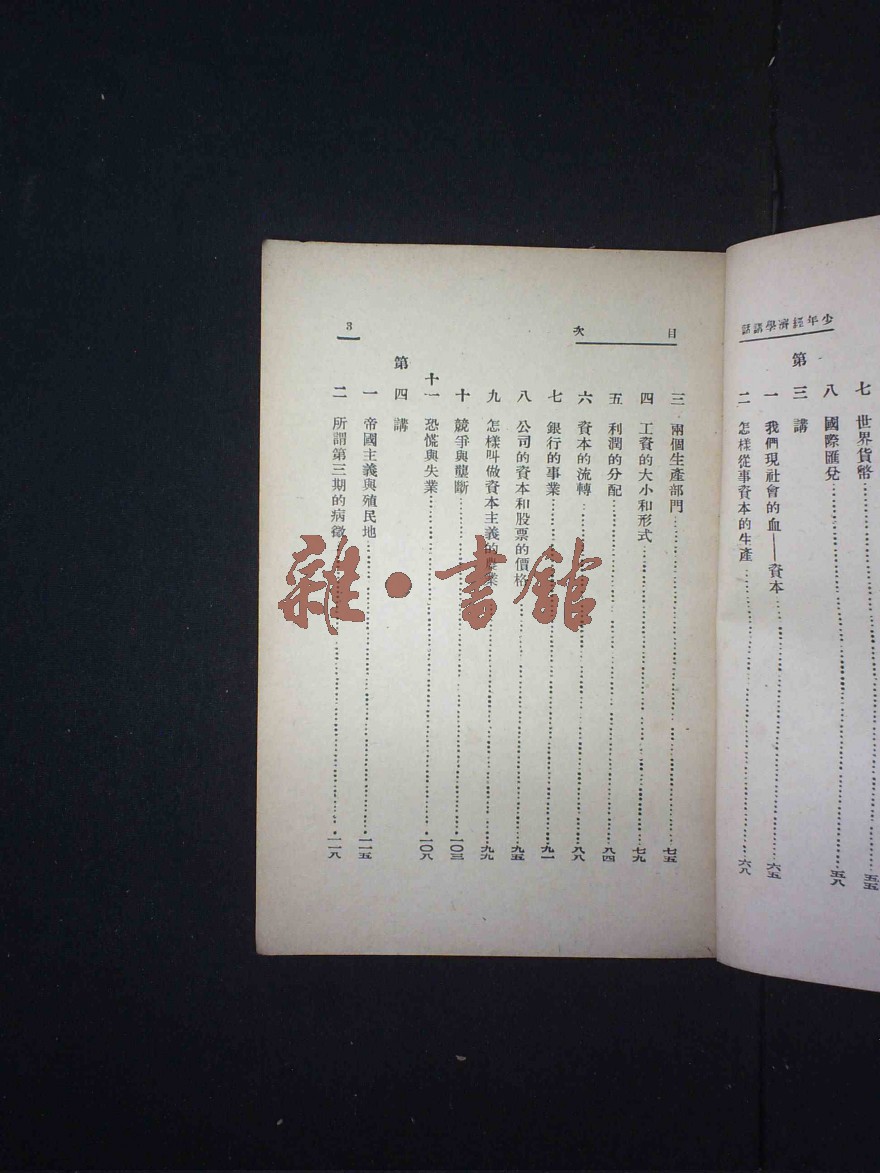 少年經濟學講話
七 世界貨幣……五五
八 國際匯兌……五八
第三講
一 我們現社會的血——資本……六五
二 怎樣從事資本的生產……六八
目次
三 兩個生產部門……七五
四 工資的大小和形式……七九
五 利潤的分配……八四
六 資本的流轉……八八
七 銀行的事業……九一
八 公司的資本和股票的價格……九五
九 怎樣叫做資本主義的農業……九九
十 競爭與壟斷……一〇三
十一 恐慌與失業……一〇八
第四講
一 帝國主義與殖民地……一一五
二 所謂第三期的病徵……一一八
3
雜·書館